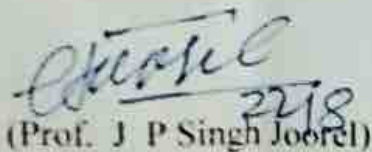 22/8
(Prof. J P Singh Joorel)